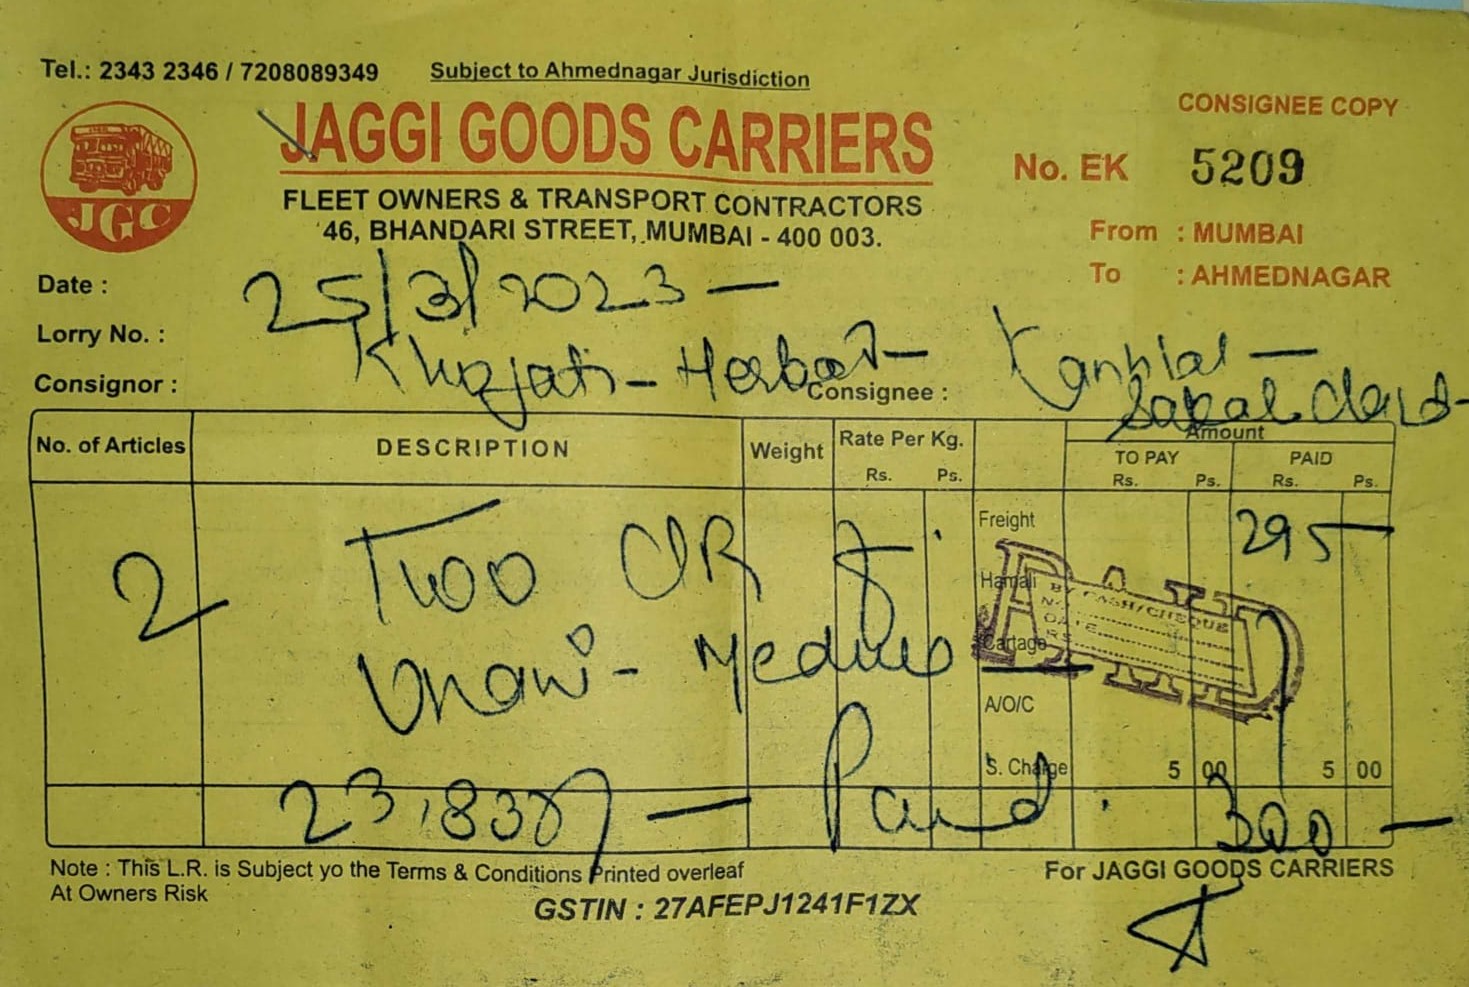 Tel.: 2343 2346 / 7208089349 Subject to Ahmednagar Jurisdiction
CONSIGNEE COPY
JGC
JAGGI GOODS CARRIERS
No. EK 5209
FLEET OWNERS & TRANSPORT CONTRACTORS
46, BHANDARI STREET, MUMBAI - 400 003.
From : MUMBAI
To : AHMEDNAGAR
Date : 25/3/2023 -
Lorry No. :
Consignor : Khojati - Herbat - Consignee : Kanhlal -
Sakal
No. of Articles DESCRIPTION Weight Rate Per Kg. Amount
Rs. Ps. TO PAY PAID
Rs. Ps. Rs. Ps.
2 Two Freight 295 -
Hamali
PAID
BY CASH/CHEQUE
NO
DATE
RS.
Unani - Cartage
A/O/C
S. Charge 5 00 5 00
Paid 300 -
Note : This L.R. is Subject yo the Terms & Conditions Printed overleaf
At Owners Risk
For JAGGI GOODS CARRIERS
GSTIN : 27AFEPJ1241F1ZX